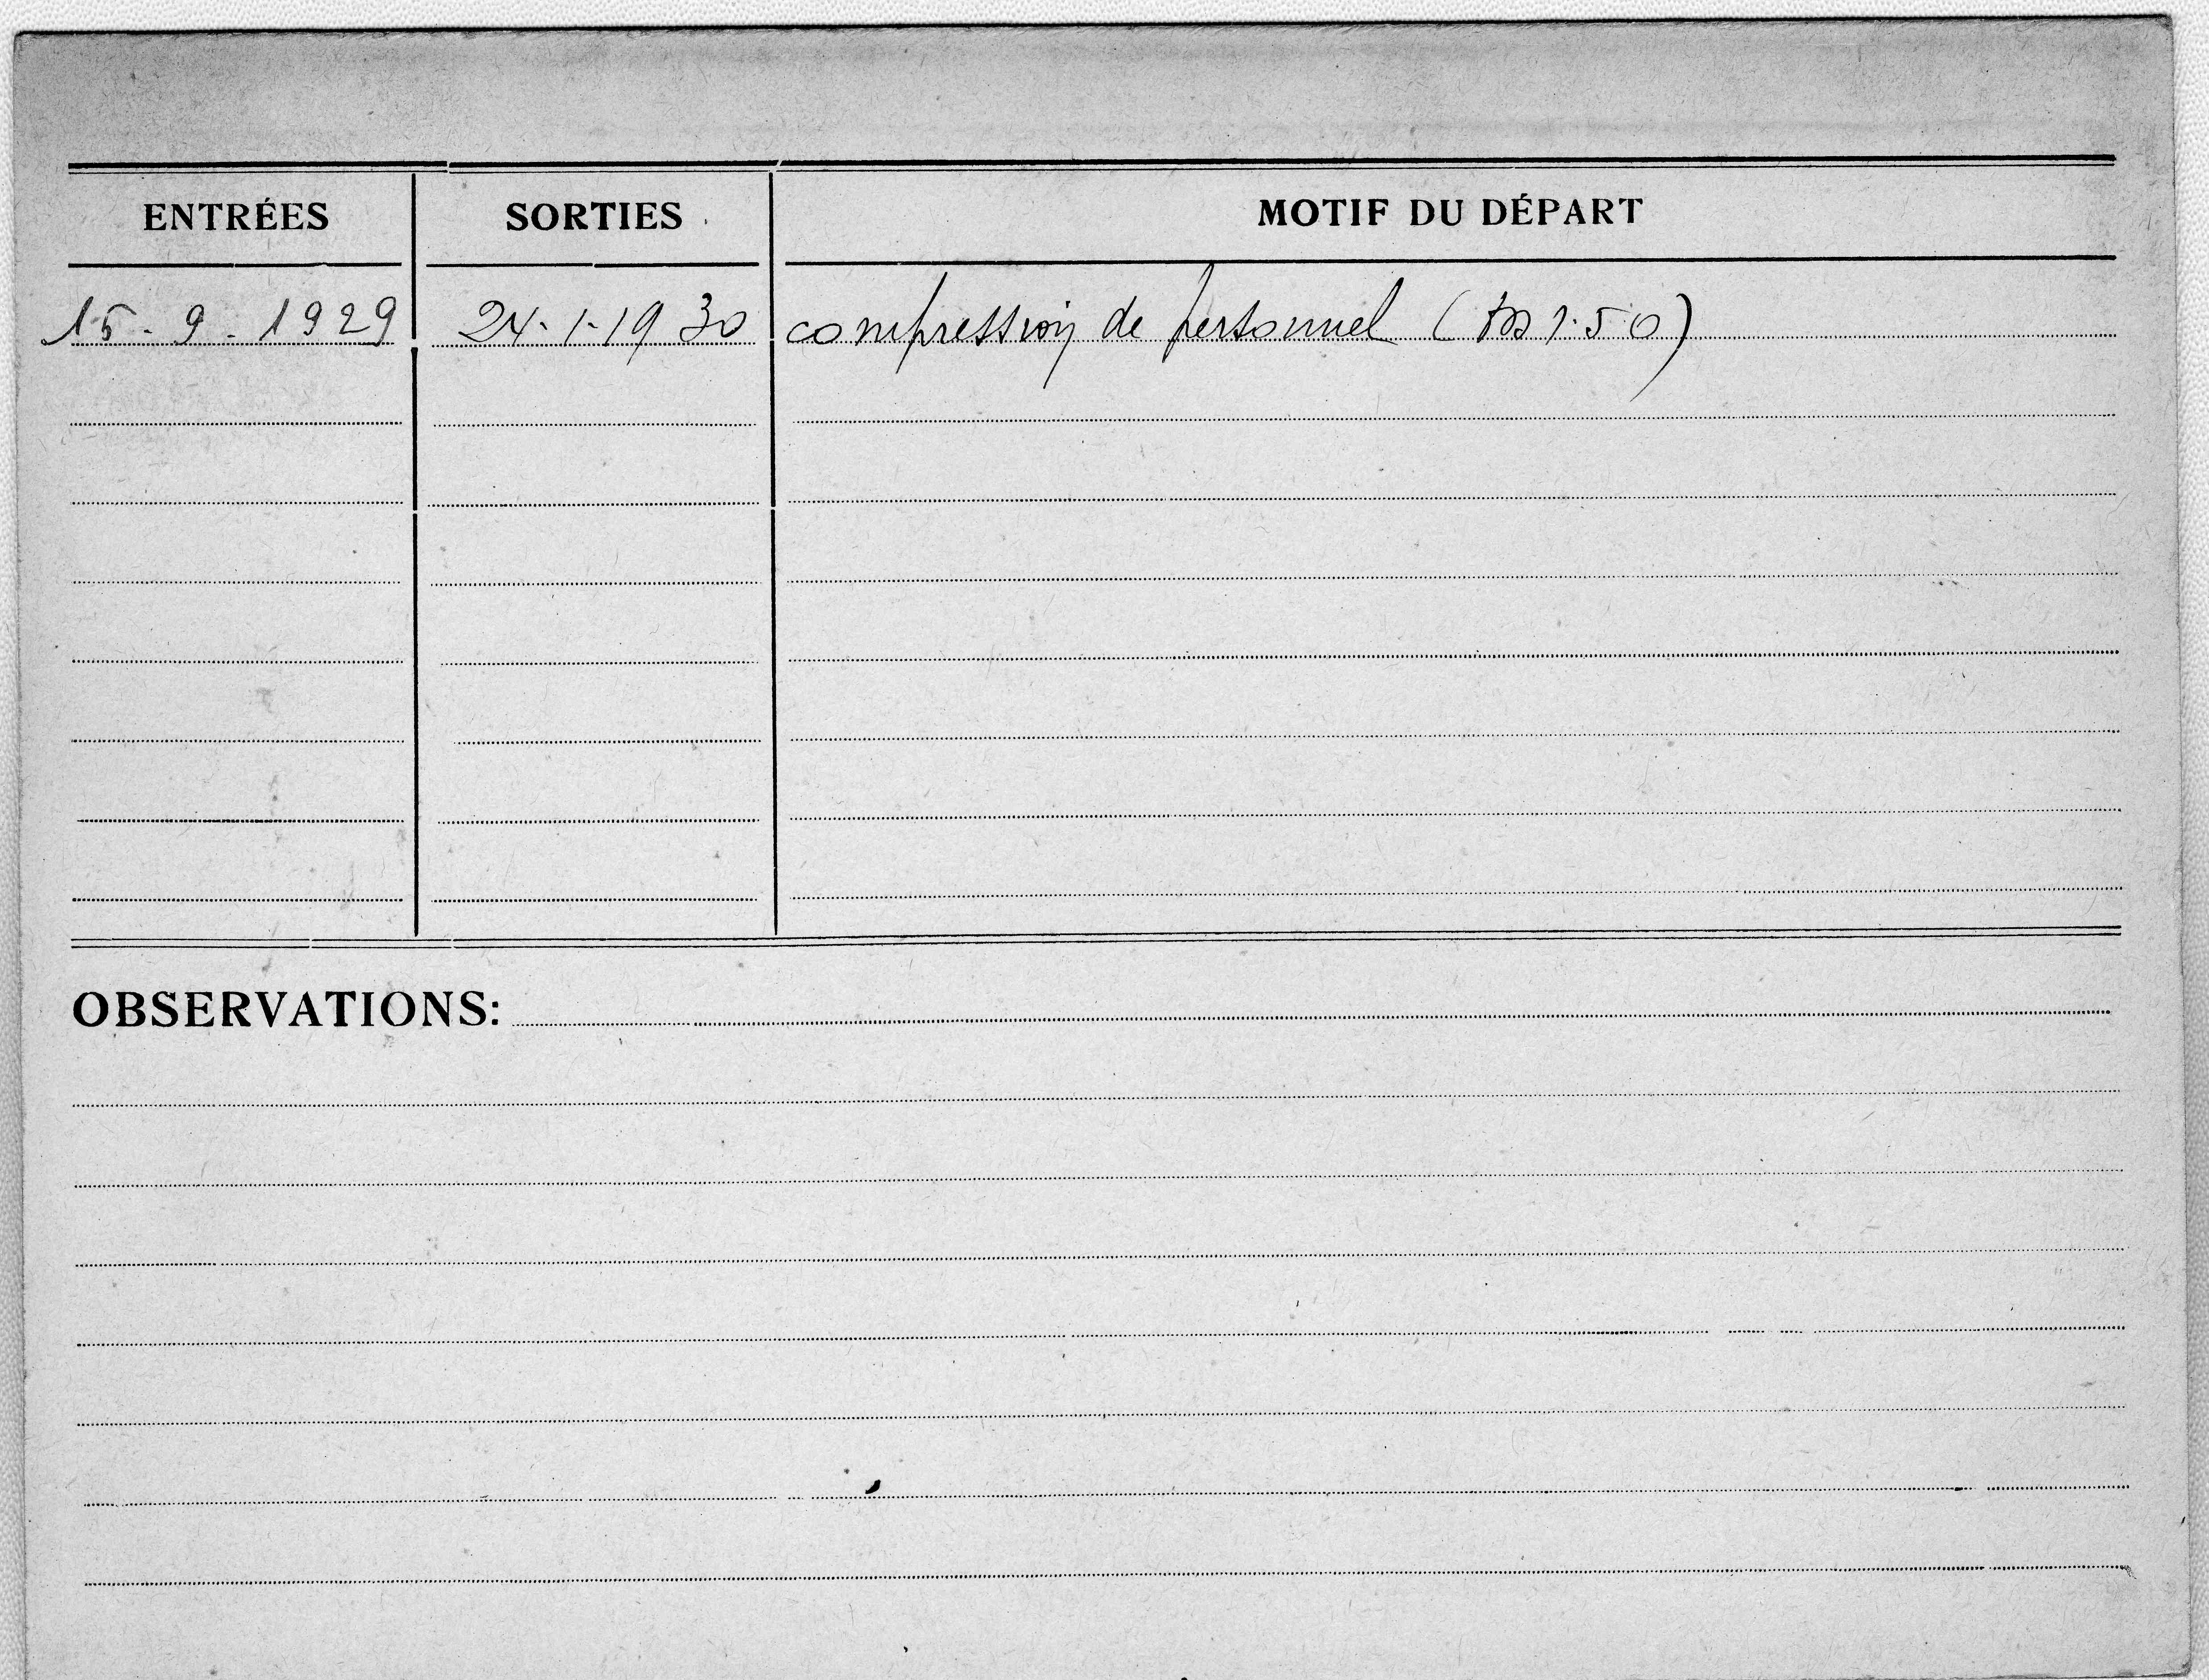 ENTRÉES SORTIES MOTIF DU DÉPART
15-9-1929 24-1-1930 compression de personnel ( 1.50)
OBSERVATIONS: